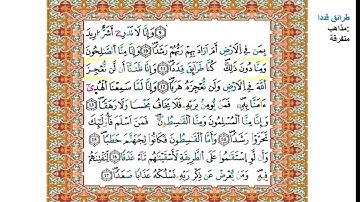 طرائق قددا
:مذاهب
متفرقة
٩ وَأَنَّا لَا نَدْرِىٓ أَشَرٌّ أُرِيدَ
بِمَن فِى ٱلْأَرْضِ أَمْ أَرَادَ بِهِمْ رَبُّهُمْ رَشَدًا ١٠ وَأَنَّا مِنَّا ٱلصَّٰلِحُونَ
وَمِنَّا دُونَ ذَٰلِكَ كُنَّا طَرَآئِقَ قِدَدًا ١١ وَأَنَّا ظَنَنَّآ أَن لَّن نُّعْجِزَ
ٱللَّهَ فِى ٱلْأَرْضِ وَلَن نُّعْجِزَهُۥ هَرَبًا ١٢ وَأَنَّا لَمَّا سَمِعْنَا ٱلْهُدَىٰٓ
ءَامَنَّا بِهِۦ فَمَن يُؤْمِنۢ بِرَبِّهِۦ فَلَا يَخَافُ بَخْسًا وَلَا رَهَقًا ١٣
وَأَنَّا مِنَّا ٱلْمُسْلِمُونَ وَمِنَّا ٱلْقَٰسِطُونَ فَمَنْ أَسْلَمَ فَأُو۟لَٰٓئِكَ
تَحَرَّوْا۟ رَشَدًا ١٤ وَأَمَّا ٱلْقَٰسِطُونَ فَكَانُوا۟ لِجَهَنَّمَ حَطَبًا ١٥
وَأَن لَّوِ ٱسْتَقَٰمُوا۟ عَلَى ٱلطَّرِيقَةِ لَأَسْقَيْنَٰهُم مَّآءً غَدَقًا ١٦ لِّنَفْتِنَهُمْ
فِيهِ وَمَن يُعْرِضْ عَن ذِكْرِ رَبِّهِۦ يَسْلُكْهُ عَذَابًا صَعَدًا ١٧